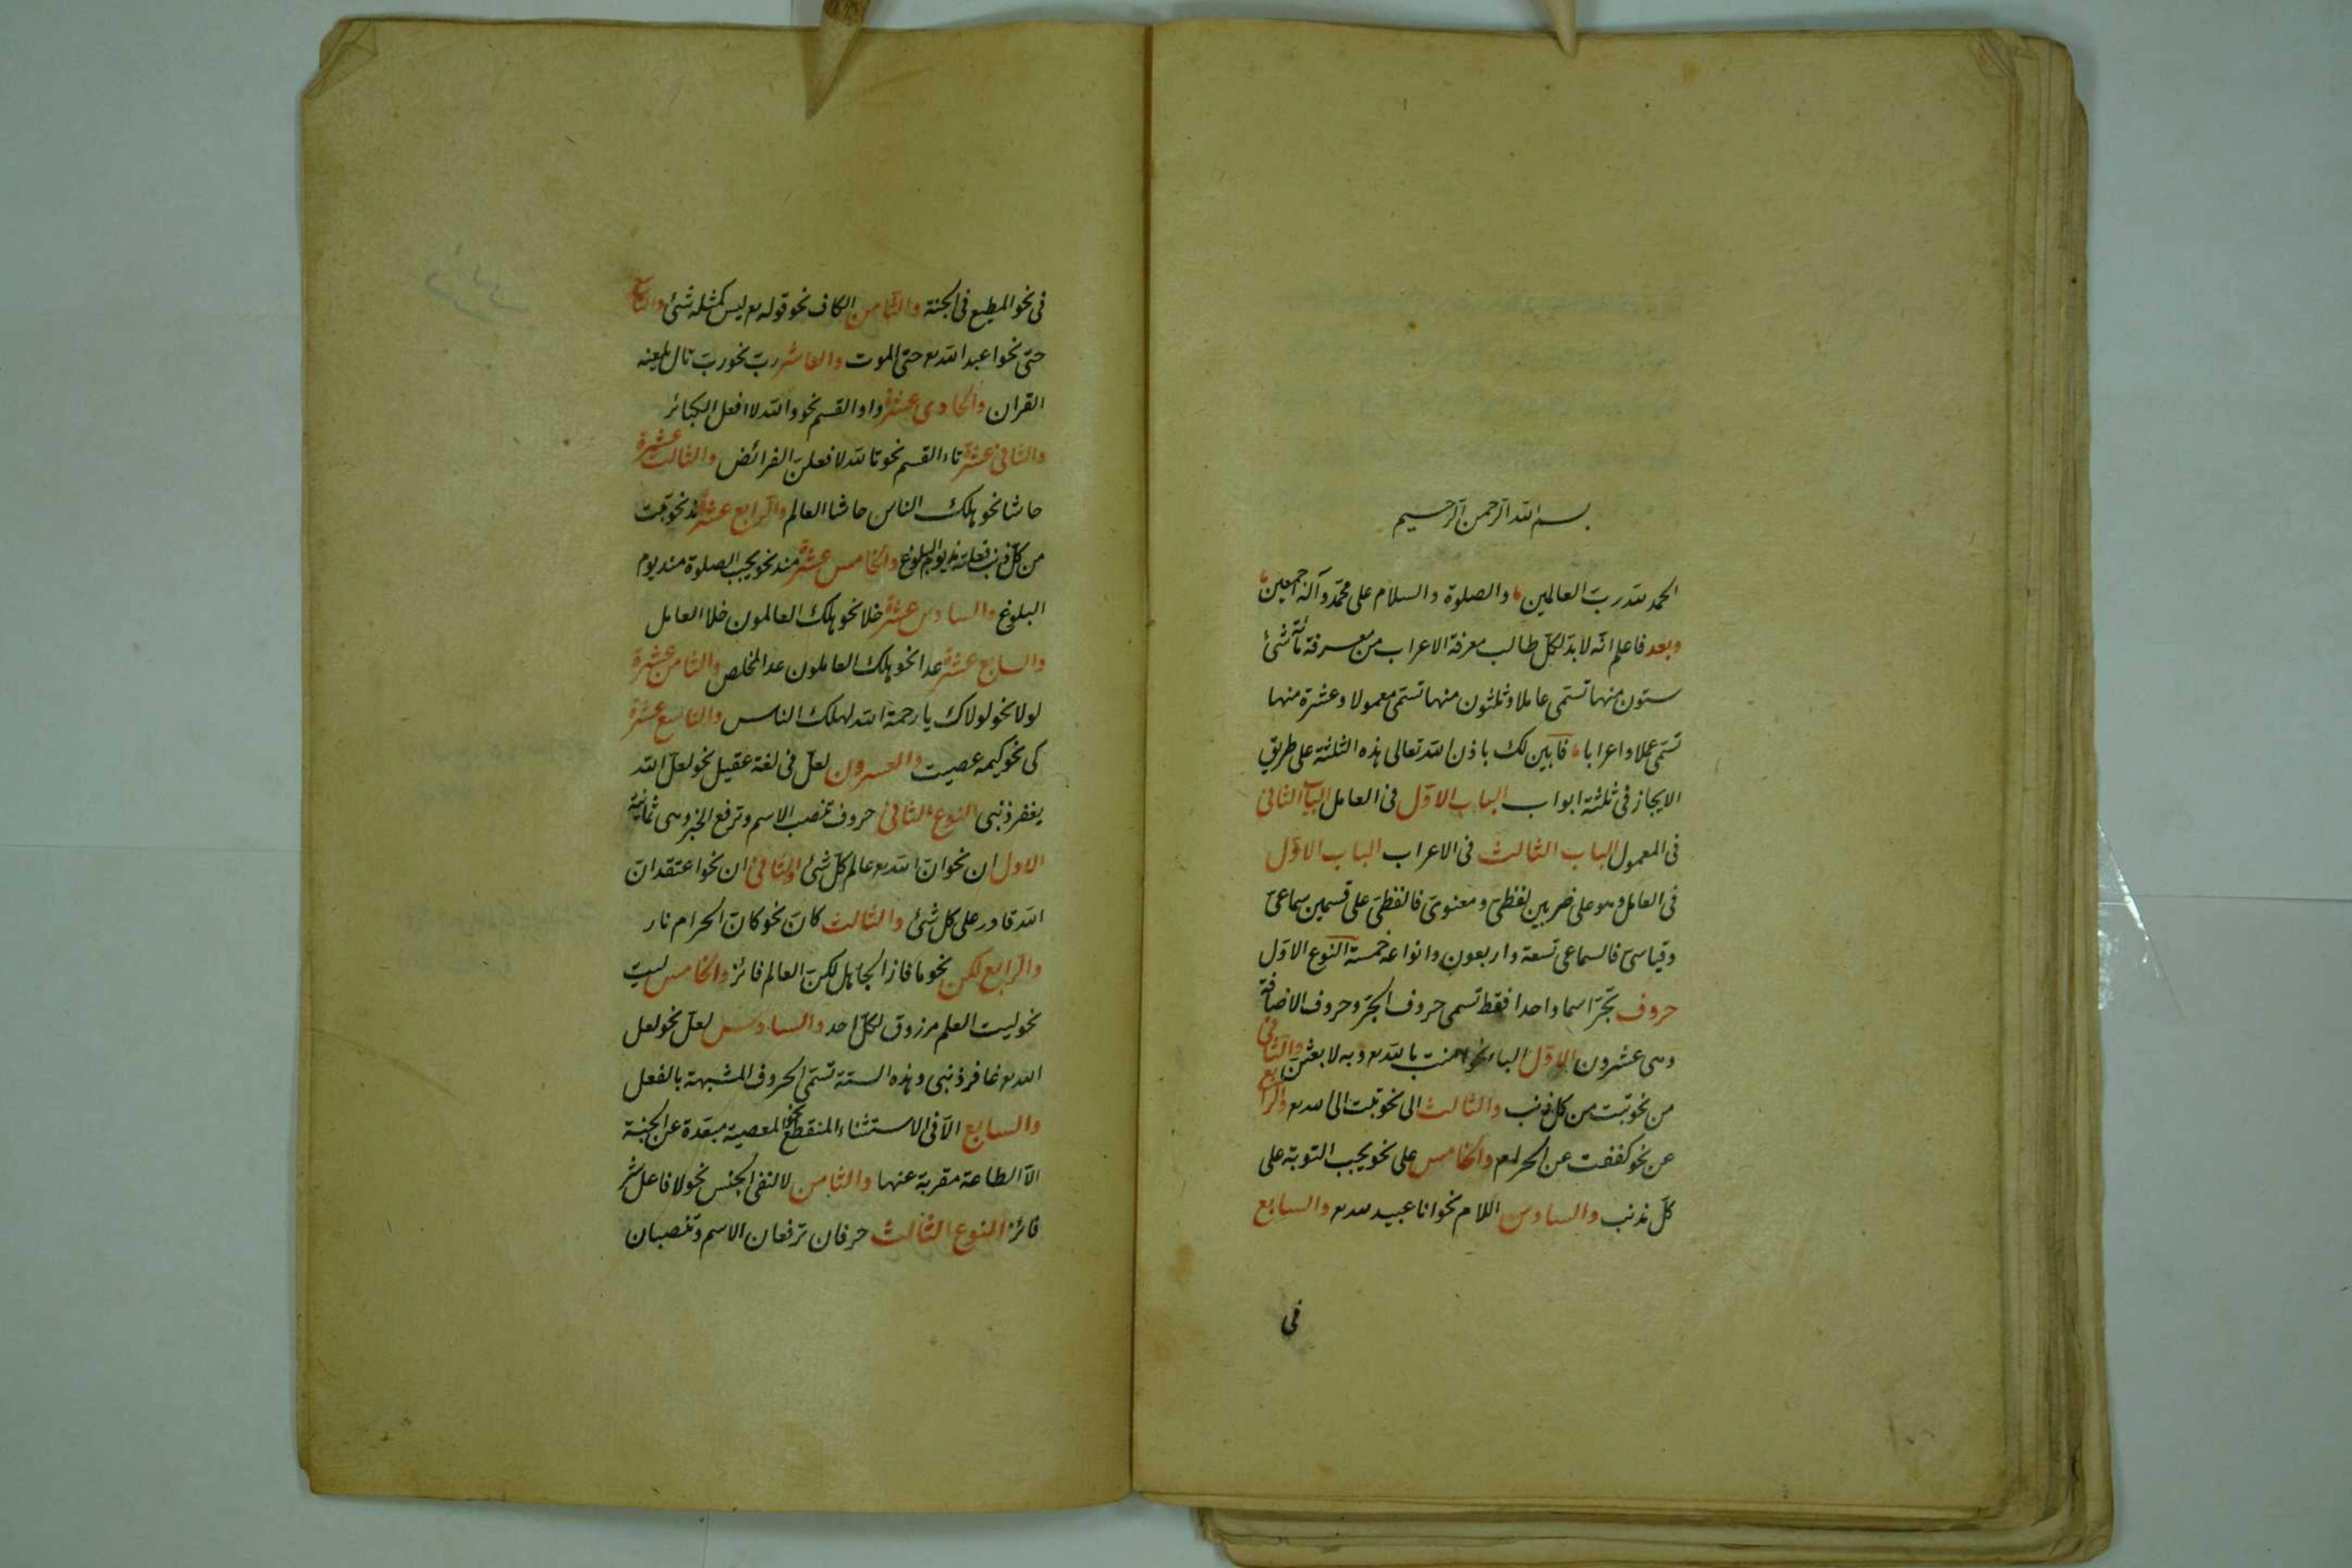 بسم الله الرحمن الرحيم
الحمد لله رب العالمين والصلوة والسلام على محمد وآله اجمعين
وبعد فاعلم انه لابد لكل طالب معرفة الاعراب من معرفة مائة شئ
ستون منها تسمى عاملا وثلثون منها تسمى معمولا وعشرة منها
تسمى عملا واعرابا فابين لك باذن الله تعالى هذه الثلثة على طريق
الايجاز فى ثلثة ابواب الباب الاول فى العامل الباب الثانى
فى المعمول الباب الثالث فى الاعراب الباب الاول
فى العامل وهو على ضربين لفظى ومعنوى فالفظى على قسمين سماعى
وقياسى فالسماعى تسعة واربعون وانواعه خمسة النوع الاول
حروف تجر اسما واحدا فقط تسمى حروف الجر وحروف الاضافة
وهى عشرون الاول الباء نحو امنت بالله تع وبه لابعثن والثانى
من نحو تبت من كل ذنب والثالث الى نحو تبت الى الله تع والرابع
عن نحو كففت عن الحرام والخامس على نحو يجب التوبة على
كل مذنب والسادس اللام نحو انا عبيد لله تع والسابع
فى
فى نحو المطيع فى الجنة والثامن الكاف نحو قوله تع ليس كمثله شئ والتاسع
حتى نحو اعبد الله تع حتى الموت والعاشر رب نحو رب تال يلعنه
القران والحادى عشرة واو القسم نحو والله لا افعل الكبائر
والثانى عشرة تاء القسم نحو تالله لافعلن الفرائض والثالث عشرة
حاشا نحو هلك الناس حاشا العالم والرابع عشرة مذ نحو تبت
من كل ذنب فعلته مذ يوم البلوغ والخامس عشرة منذ نحو يجب الصلوة منذ يوم
البلوغ والسادس عشرة خلا نحو هلك العالمون خلا العامل
والسابع عشرة عدا نحو هلك العاملون عدا المخلص والثامن عشرة
لولا نحو لولاك يا رحمة الله لهلك الناس والتاسع عشرة
كى نحو كيمه عصيت والعشرون لعل فى لغة عقيل نحو لعل الله
يغفر ذنبى النوع الثانى حروف تنصب الاسم وترفع الخبر وهى ثمانية
الاول ان نحو ان الله تع عالم كل شئ والثانى ان نحو اعتقد ان
الله قادر على كل شئ والثالث كان نحو كان الحرام نار
والرابع لكن نحو ما فاز الجاهل لكن العالم فائز والخامس ليت
نحو ليت العلم مرزوق لكل احد والسادس لعل نحو لعل
الله تع غافر ذنبى وهذه الستة تسمى الحروف المشبهة بالفعل
والسابع الا فى الاستثناء المنقطع نحو المعصية مبعدة عن الجنة
الا الطاعة مقربة عنها والثامن لا لنفى الجنس نحو لا فاعل شر
فائز النوع الثالث حرفان ترفعان الاسم وتنصبان